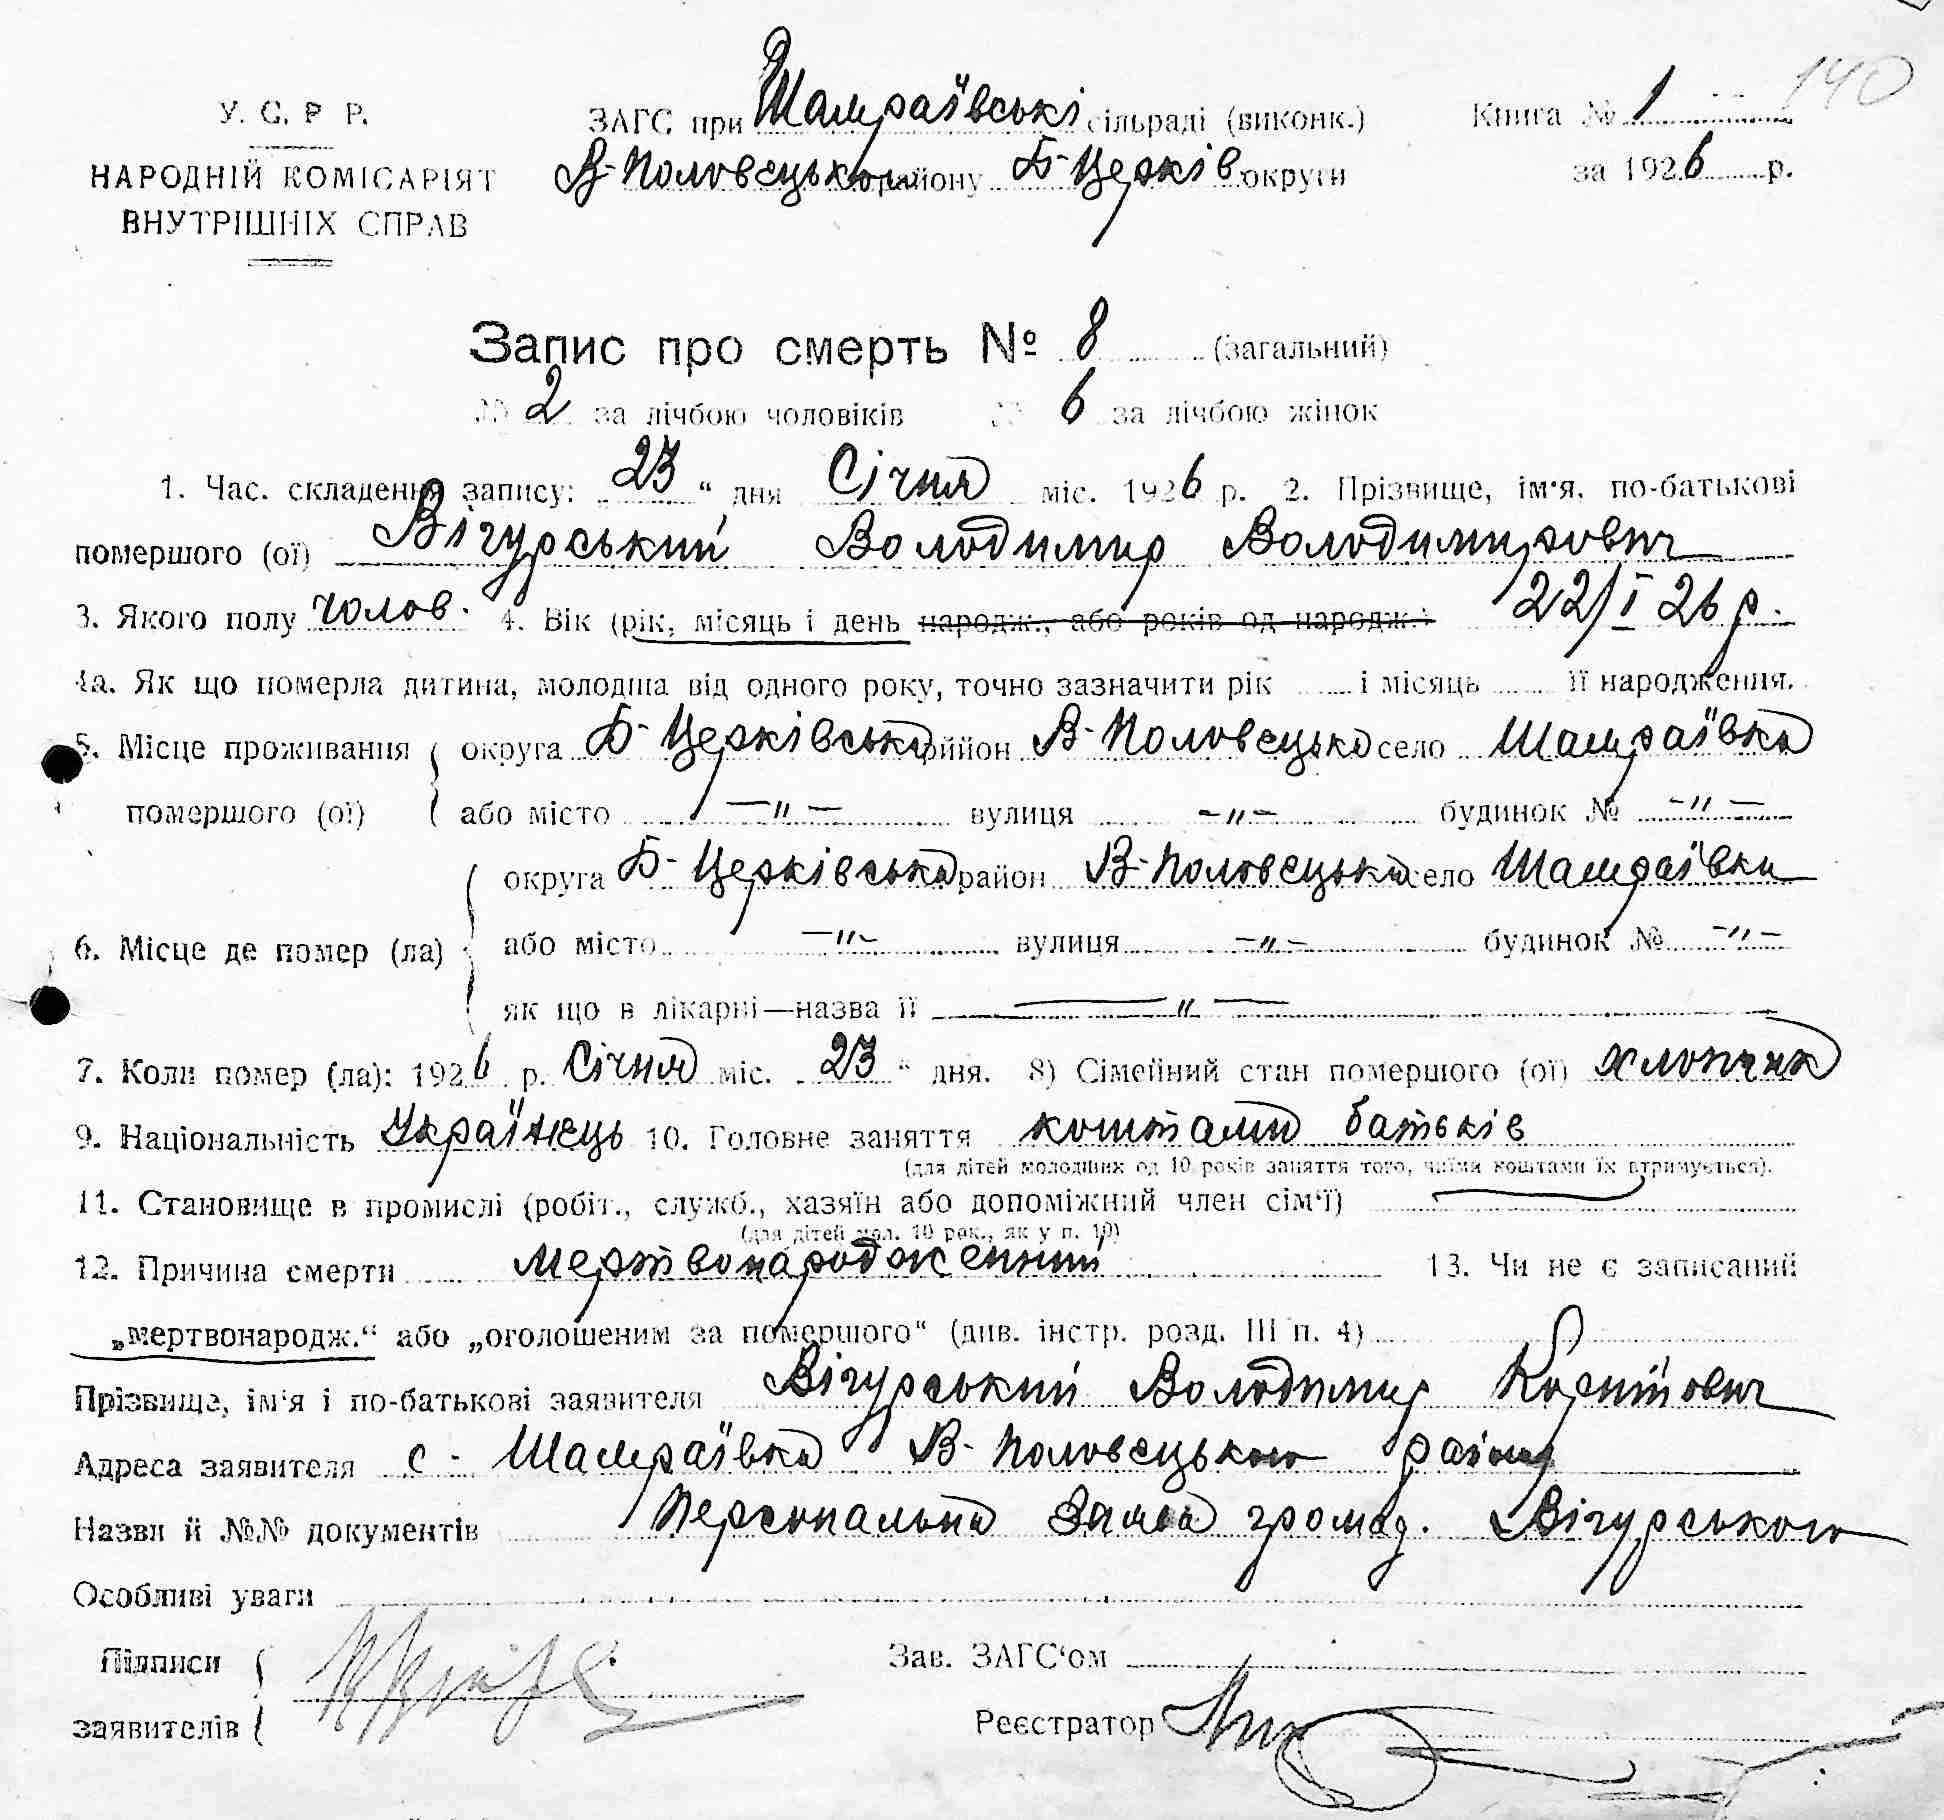 140
У. С. Р Р. ЗАГС при Шамраївські сільраді (виконк.) Книга № 1
НАРОДНІЙ КОМІСАРІЯТ В-Половецького району Б-Церків округи за 1926 р.
ВНУТРІШНІХ СПРАВ
Запис про смерть № 8 (загальний)
№ 2 за лічбою чоловіків № 6 за лічбою жінок
1. Час. складення запису: „23“ дня Січня міс. 1926 р. 2. Прізвище, ім'я, по-батькові
помершого (ої) Вігурський Володимир Володимирович
3. Якого полу чолов. 4. Вік (рік, місяць і день народж., або років од народж.) 22/I 26 р.
4а. Як що померла дитина, молодша від одного року, точно зазначити рік і місяць її народження.
5. Місце проживання округа Б-Церківська рййон В-Половецько село Шамраївка
помершого (ої) або місто —"— вулиця —"— будинок № —"—
округа Б-Церківська район В-Половецька село Шамраївка
6. Місце де помер (ла) або місто —"— вулиця —"— будинок № —"—
як що в лікарні—назва її —"—
7. Коли помер (ла): 1926 р. Січня міс. „23“ дня. 8) Сімейний стан помершого (ої) хлопчик
9. Національність Українець 10. Головне заняття коштами батьків
(для дітей молодших од 10 років заняття того, чиїми коштами їх втримується).
11. Становище в промислі (робіт., служб., хазяїн або допоміжний член сім'ї)
(для дітей мол. 10 рок., як у п. 10)
12. Причина смерти мертвонароджений 13. Чи не є записаний
„мертвонародж.“ або „оголошеним за помершого“ (див. інстр. розд. III п. 4)
Прізвище, ім'я і по-батькові заявителя Вігурський Володимир
Адреса заявителя с. Шамраївка В-Половецького району
Назви й №№ документів Персональна Заява громад. Вігурського
Особливі уваги
Підписи Зав. ЗАГС'ом
заявителів Реєстратор